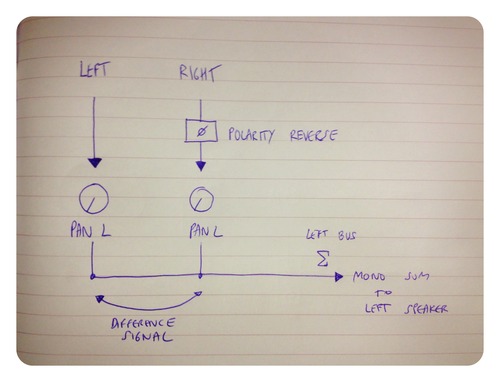 LEFT RIGHT
Ø POLARITY REVERSE
PAN L PAN L
LEFT BUS
Σ
MONO SUM
TO
LEFT SPEAKER
DIFFERENCE
SIGNAL